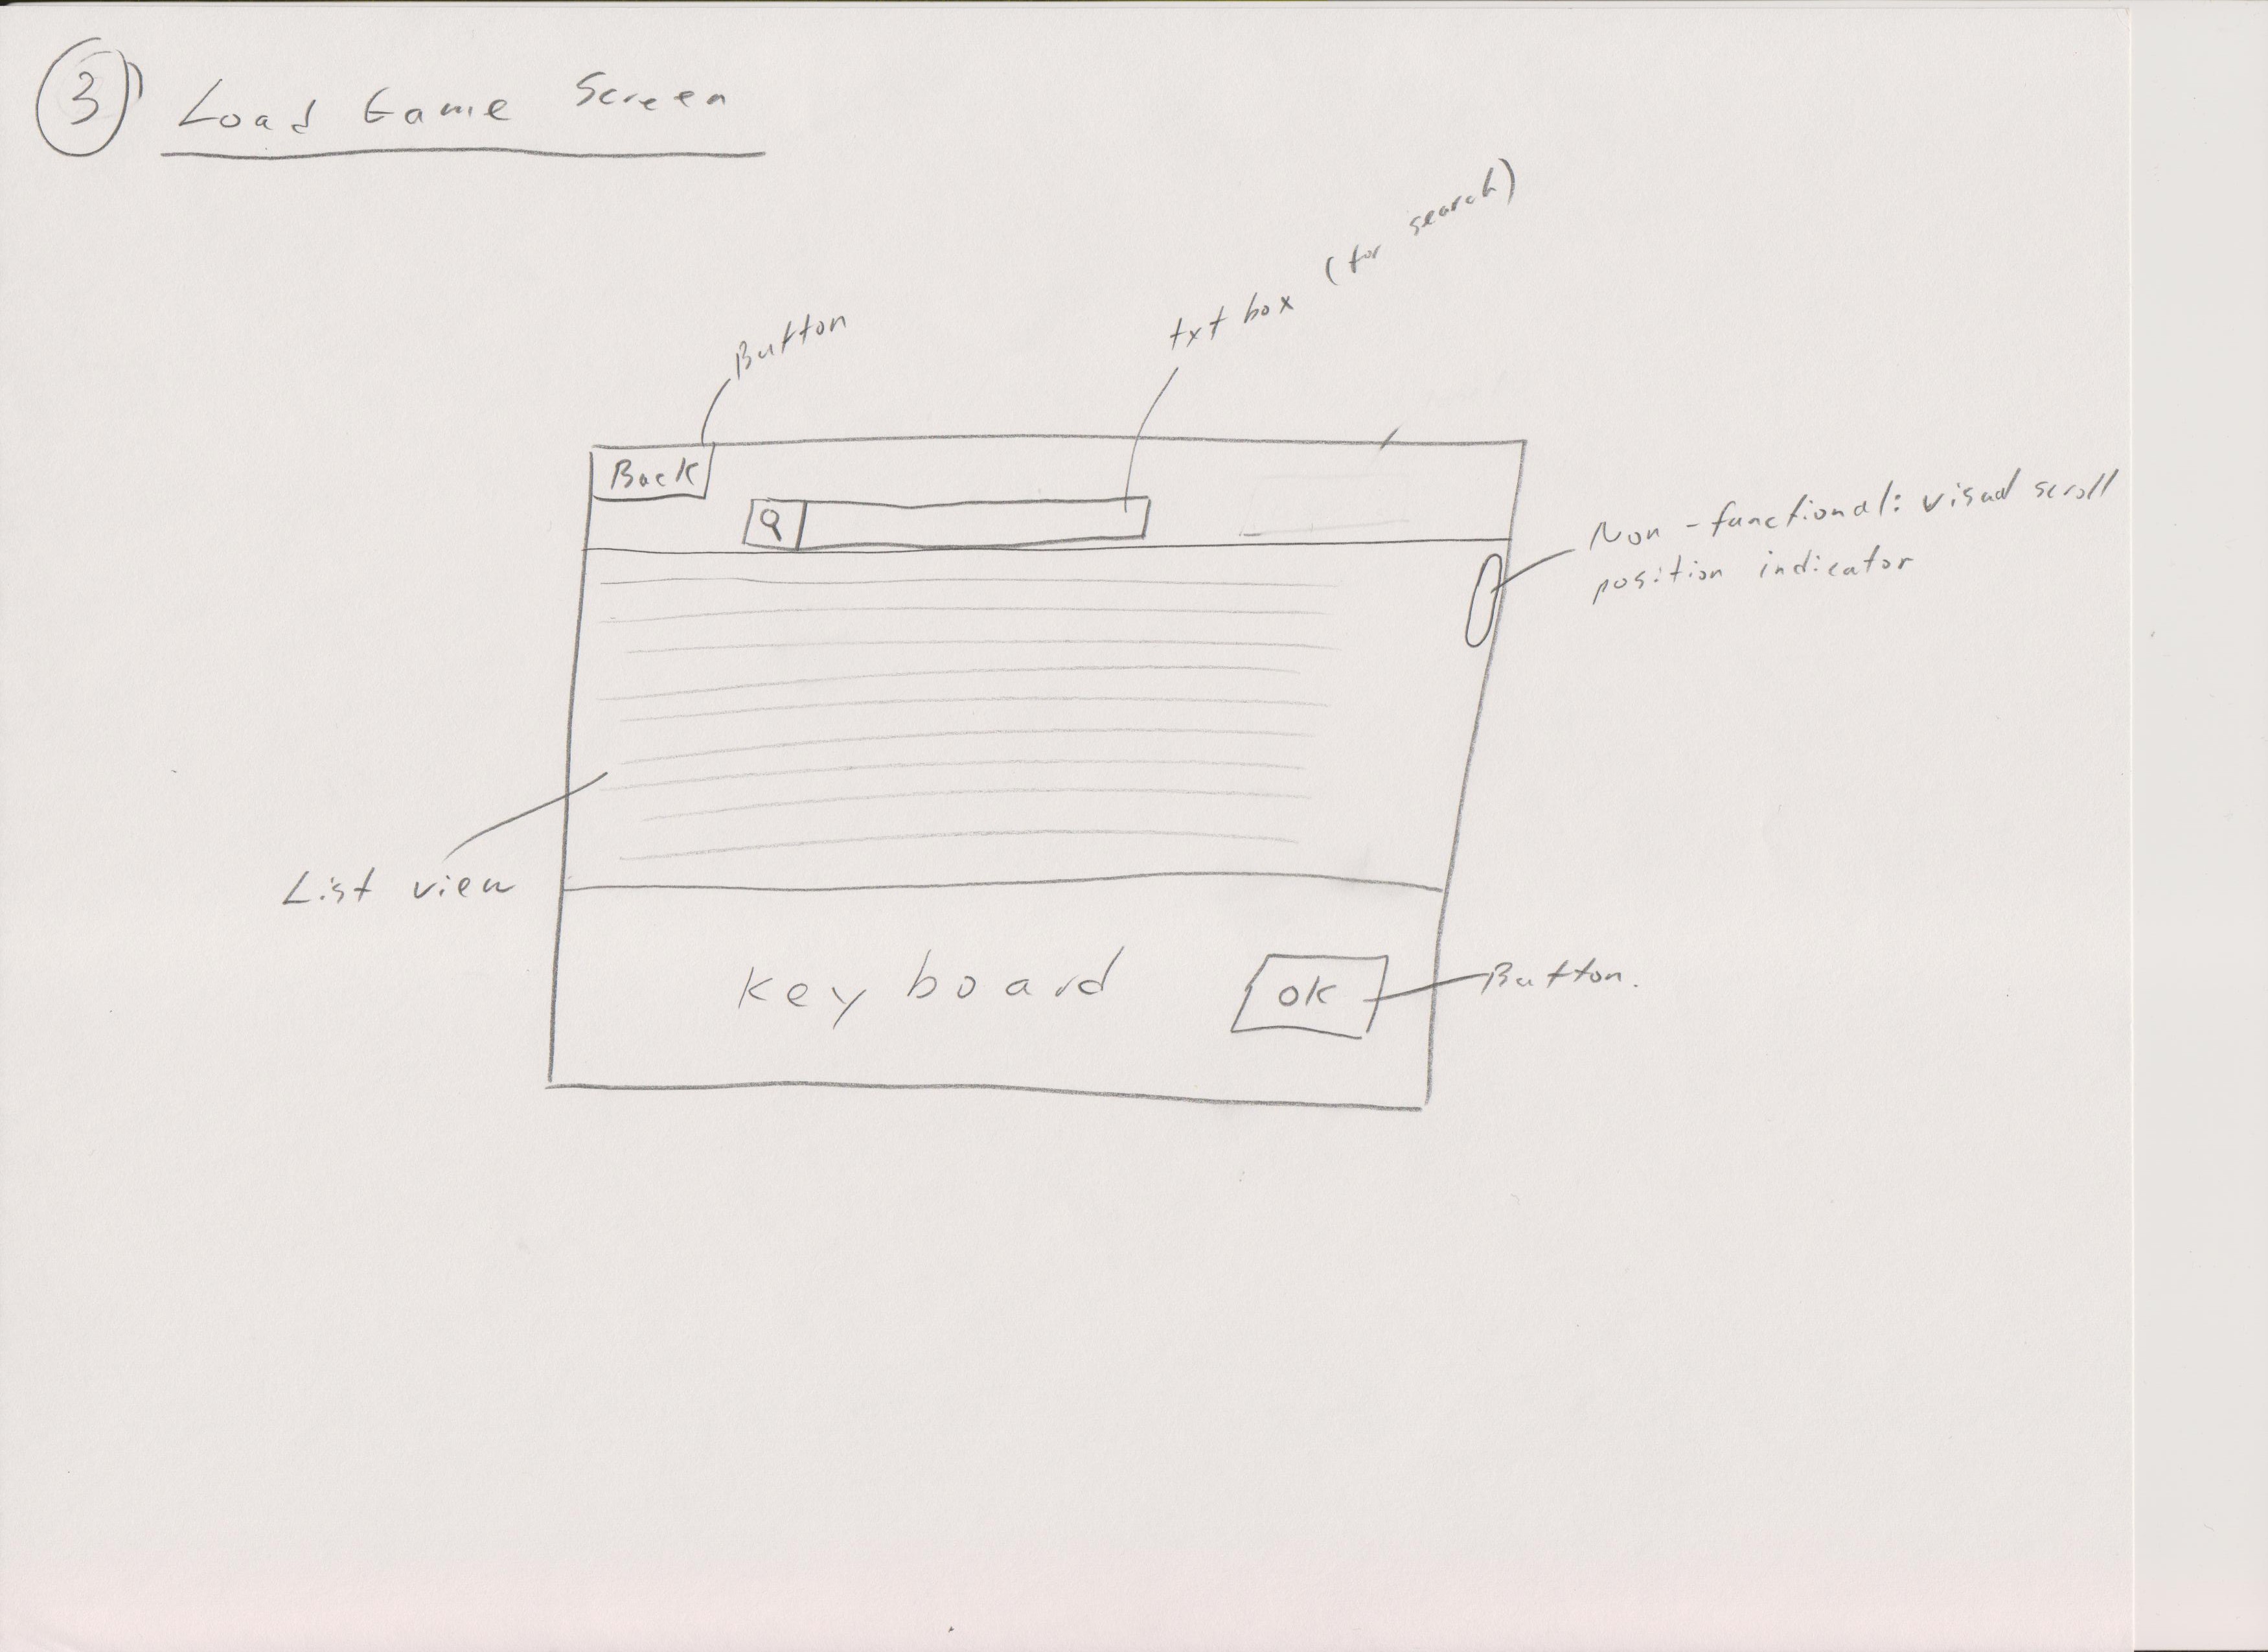 3 Load Game Screen
txt box (for search)
Button
Back
Non-functional: visual scroll
position indicator
List view
Keyboard
OK
Button.